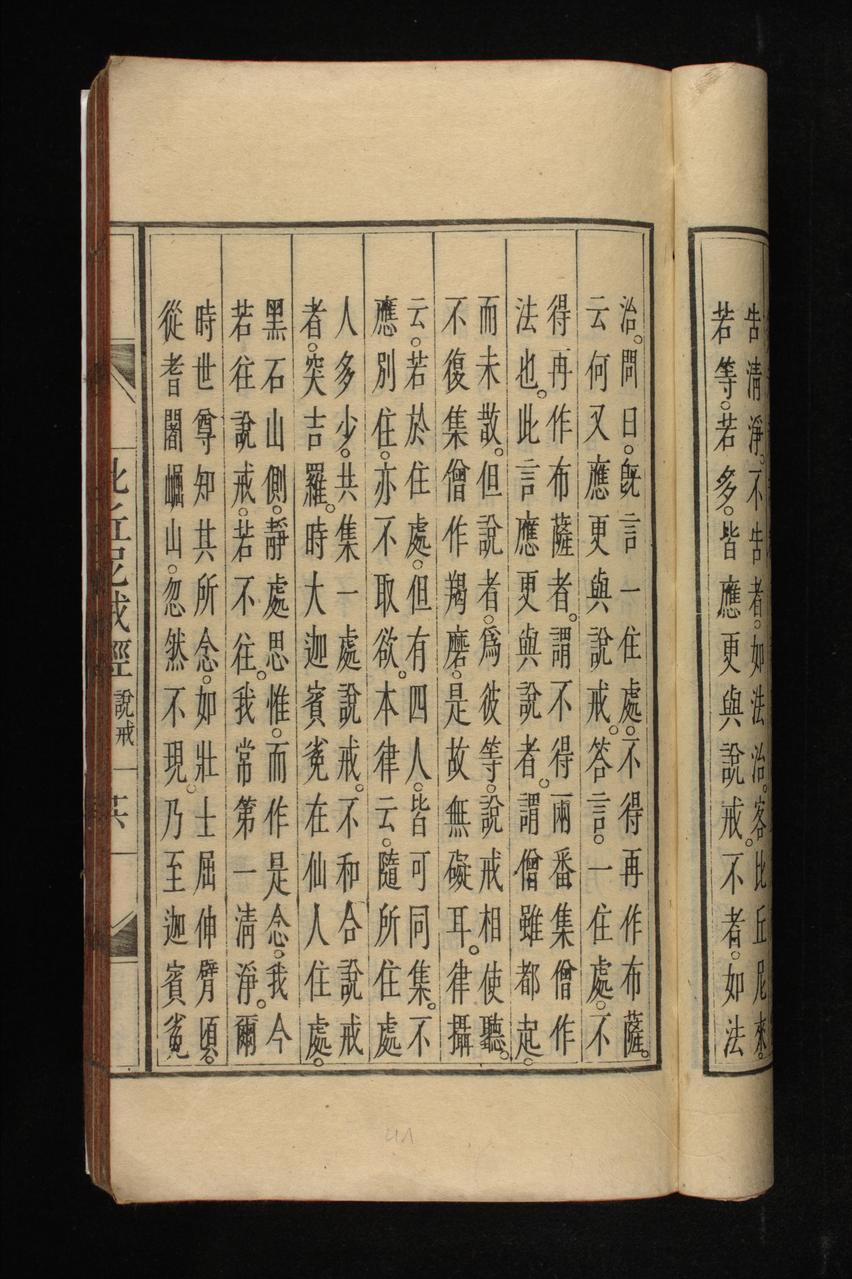 告清淨。不告者。如法治。客比丘尼來。
若等。若多。皆應更與說戒。不者。如法
治。問曰。既言一住處。不得再作布薩。
云何又應更與說戒。答言。一住處。不
得再作布薩者。謂不得兩番集僧作
法也。此言應更與說者。謂僧雖都起。
而未散。但說者。為彼等。說戒相使聽。
不復集僧作羯磨。是故無礙耳。律攝
云。若於住處。但有四人。皆可同集。不
應別住。亦不取欲。本律云。隨所住處
人多少。共集一處說戒。不和合說戒
者。突吉羅。時大迦賓㝹在仙人住處。
黑石山側。靜處思惟。而作是念。我今
若往說戒。若不往。我常第一清淨。爾
時世尊知其所念。如壯士屈伸臂頃。
從耆闍崛山。忽然不現。乃至迦賓㝹
比丘尼戒經 說戒 一